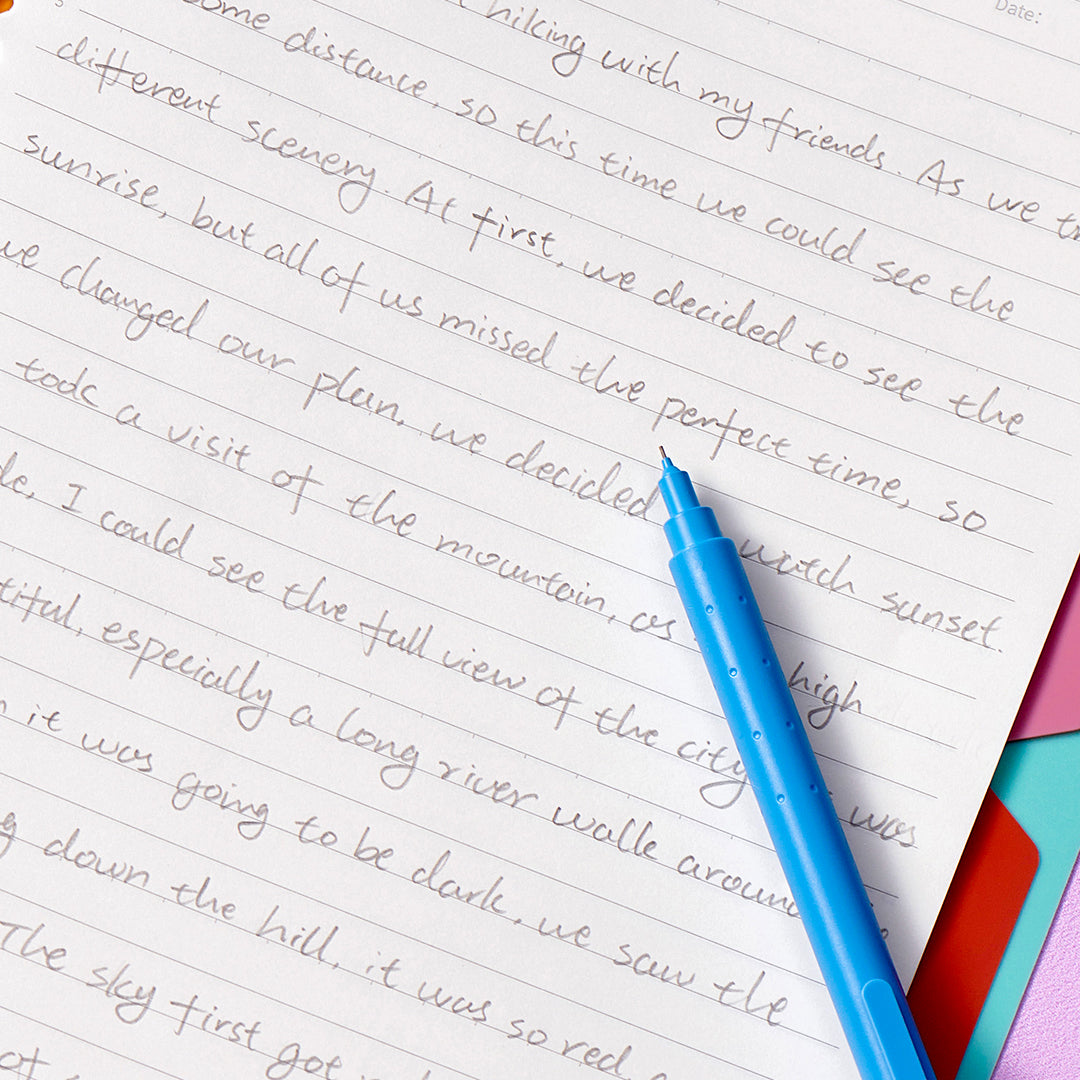 Date:
hiking with my friends. As we
some distance, so this time we could see the
different scenery. At first, we decided to see the
sunrise, but all of us missed the perfect time, so
we changed our plan, we decided watch sunset.
took a visit of the mountain, as high
I could see the full view of the city was
especially a long river walk around
it was going to be dark, we saw the
down the hill, it was so red.
The sky first got